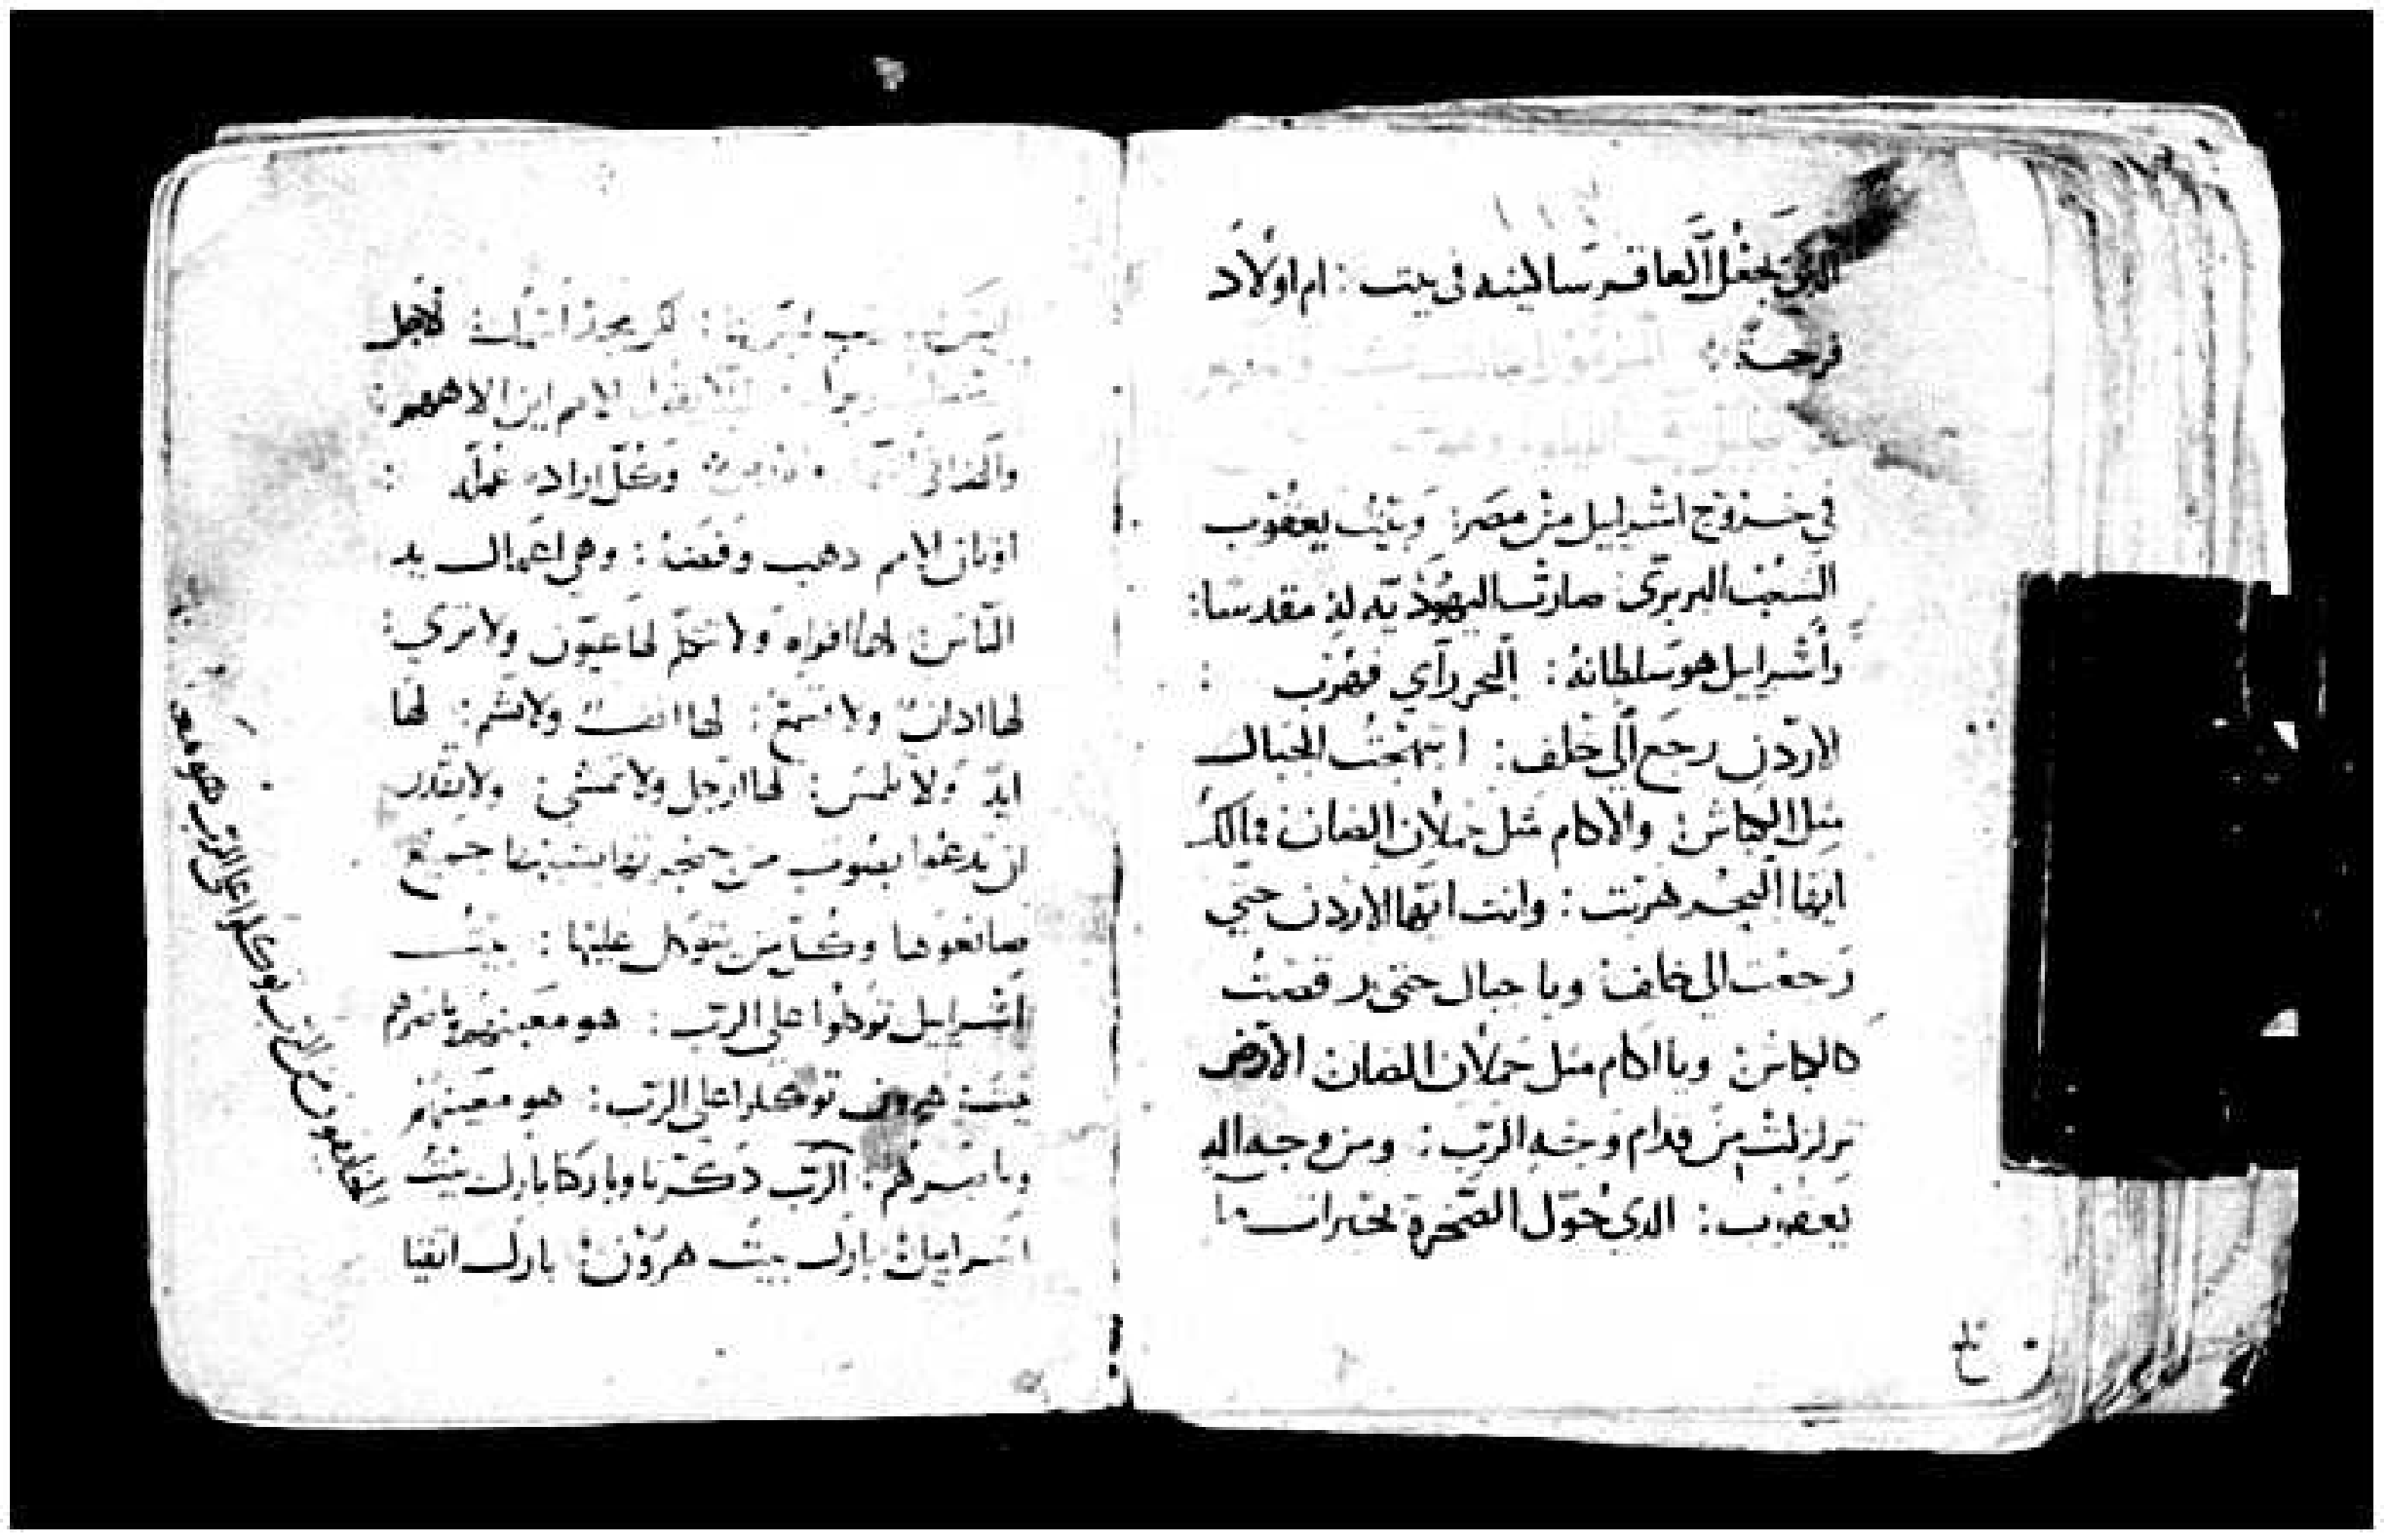 الدي يجعل العاقر ساكنه في بيت : ام اولاد
فرحت :
في خروج اسرايل من مصر : وبيت يعقوب
الشعب البربري صارت اليهوديه له مقدسا :
واسرايل هو سلطانه : البحر رآي فهرب :
الاردن رجع الي خلف : ابتهجت الجبال
مثل الكباش : والاكام مثل حملان الضان : مالك
ايها البحر هربت : وانت ايها الاردن حتي
رجعت الي خلف : ويا جبال حتي رقصت
كالكباش : ويا اكام مثل حملان الضان الارض
تزلزلت من قدام وجه الرب : ومن وجه اله
يعقوب : الدي حول الصخرة بحيرات ما
لكن مجد اسمك لاجل
ليلا يقول الامم اين الاههم :
وكل اراد عمله :
اوتان الامم دهب وفضه : وهي اعمال يد
الناس لها افواه ولا تتكلم لها عيون ولا تري :
لها ادان ولا تسمع : لها انف ولا تشم : لها
ايد ولا تلمس : لها ارجل ولا تمشي : ولا تقدر
ان تدعوا بصوت من جميع
صانعوها وكل من يتوكل عليها : بيت
اسرايل توكلوا علي الرب : هو معينهم وناصرهم
بيت هرون توكلوا علي الرب : هو معينهم
وناصرهم : الرب دكرنا وباركنا بارك بيت
اسراييل بارك بيت هرون : بارك اتقيا
الخايفون من الرب توكلوا علي الرب هو معينهم